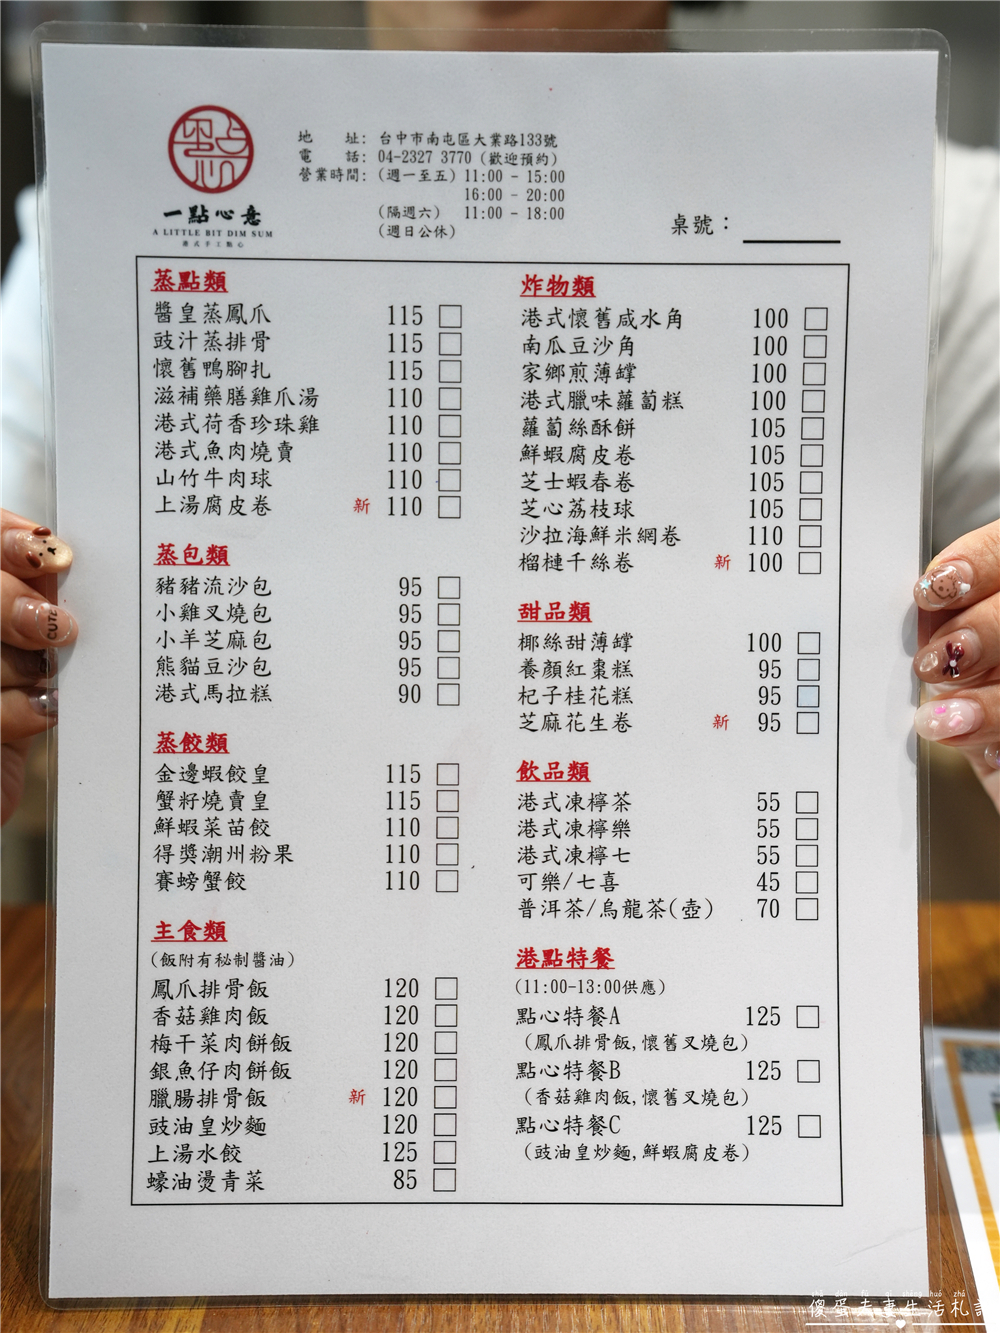 一點心意
A LITTLE BIT DIM SUM
港式手工點心
地　　址: 台中市南屯區大業路133號
電　　話: 04-2327 3770 (歡迎預約)
營業時間: (週一至五) 11:00 - 15:00
16:00 - 20:00
(隔週六) 11:00 - 18:00
(週日公休)
桌號：
蒸點類
醬皇蒸鳳爪 115
豉汁蒸排骨 115
懷舊鴨腳扎 115
滋補藥膳雞爪湯 110
港式荷香珍珠雞 110
港式魚肉燒賣 110
山竹牛肉球 110
上湯腐皮卷 新 110
蒸包類
豬豬流沙包 95
小雞叉燒包 95
小羊芝麻包 95
熊貓豆沙包 95
港式馬拉糕 90
蒸餃類
金邊蝦餃皇 115
蟹籽燒賣皇 115
鮮蝦菜苗餃 110
得獎潮州粉果 110
賽螃蟹餃 110
主食類
(飯附有秘制醬油)
鳳爪排骨飯 120
香菇雞肉飯 120
梅干菜肉餅飯 120
銀魚仔肉餅飯 120
臘腸排骨飯 新 120
豉油皇炒麵 120
上湯水餃 125
蠔油燙青菜 85
炸物類
港式懷舊咸水角 100
南瓜豆沙角 100
家鄉煎薄罉 100
港式臘味蘿蔔糕 100
蘿蔔絲酥餅 105
鮮蝦腐皮卷 105
芝士蝦春卷 105
芝心荔枝球 105
沙拉海鮮米網卷 110
榴槤千絲卷 新 100
甜品類
椰絲甜薄罉 100
養顏紅棗糕 95
杞子桂花糕 95
芝麻花生卷 新 95
飲品類
港式凍檸茶 55
港式凍檸樂 55
港式凍檸七 55
可樂/七喜 45
普洱茶/烏龍茶(壺) 70
港點特餐
(11:00-13:00供應)
點心特餐A 125
(鳳爪排骨飯,懷舊叉燒包)
點心特餐B 125
(香菇雞肉飯,懷舊叉燒包)
點心特餐C 125
(豉油皇炒麵,鮮蝦腐皮卷)
CUTE
傻蛋夫妻生活札記